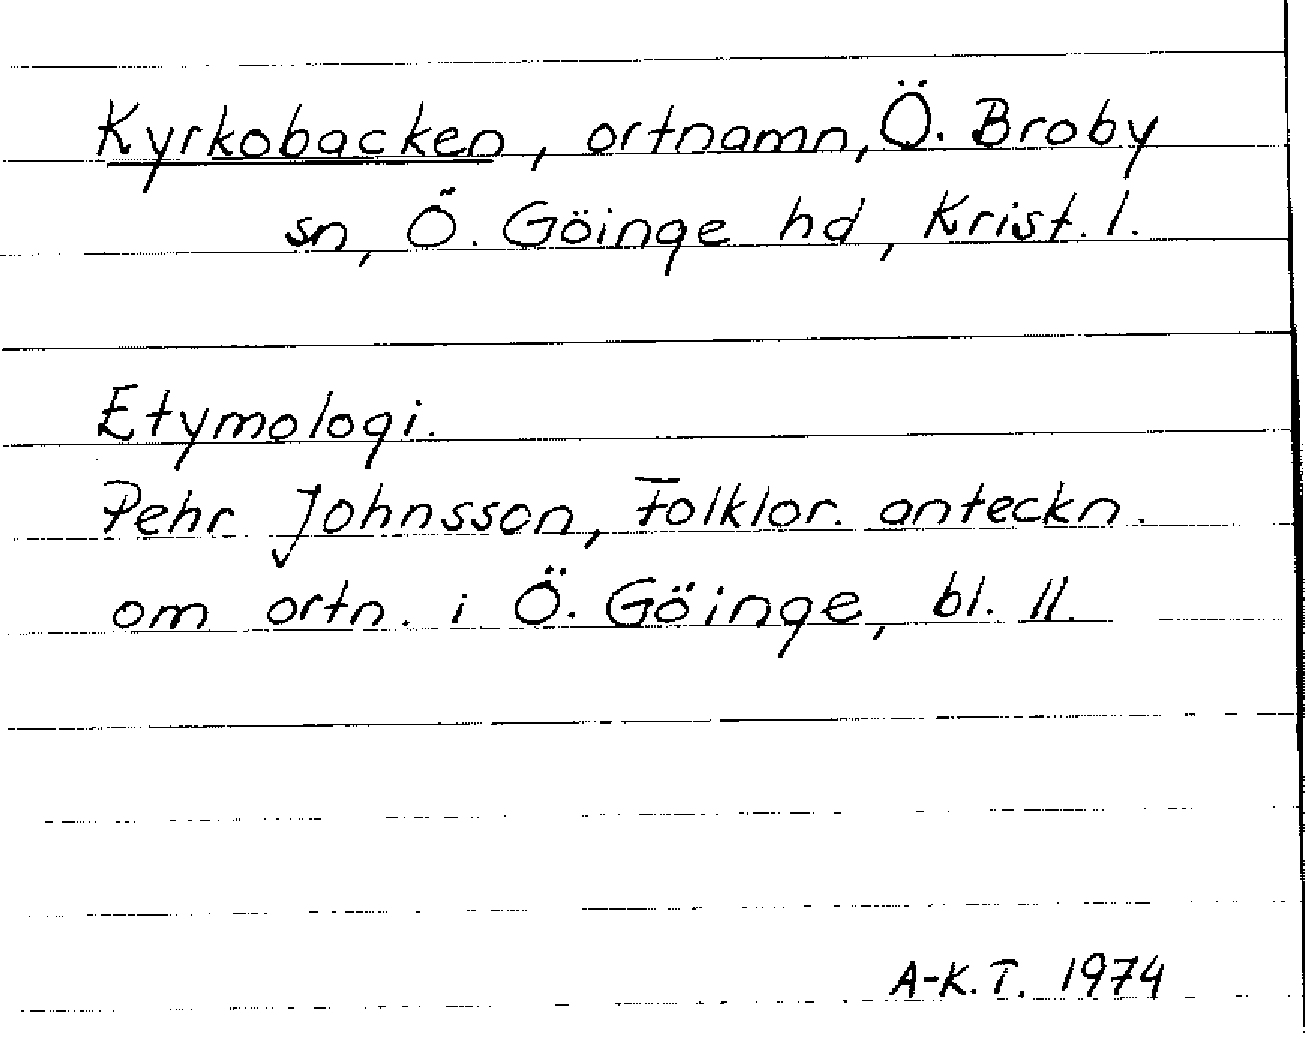 Kyrkobacken, ortnamn, Ö. Broby
sn, Ö. Göinge hd, Krist. l.
Etymologi.
Pehr Johnsson, Folklor. anteckn.
om ortn. i Ö. Göinge, bl. 11.
A-K. T. 1974